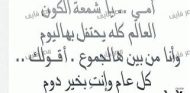 أمـي .. يا شمعة الكون
العالم كله يحتفل بهاليوم
وأنا من بين هالجموع . أقولك ..
كل عام وانتِ بخير دوم